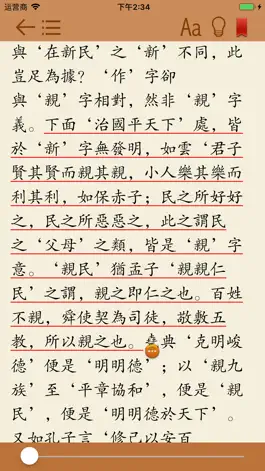 运营商 下午2:34
Aa
與‘在新民’之‘新’不同，此
豈足為據？‘作’字卻
與‘親’字相對，然非‘親’字
義。下面‘治國平天下’處，皆
於‘新’字無發明，如雲‘君子
賢其賢而親其親，小人樂其樂而
利其利，如保赤子；民之所好好
之，民之所惡惡之，此之謂民
之‘父母’之類，皆是‘親’字
意。‘親民’猶孟子‘親親仁
民’之謂，親之即仁之也。百姓
不親，舜使契為司徒，敬敷五
教，所以親之也。堯典‘克明峻
德’便是‘明明德’；以‘親九
族’至‘平章協和’，便是‘親
民’，便是‘明明德於天下’。
又如孔子言‘修己以安百